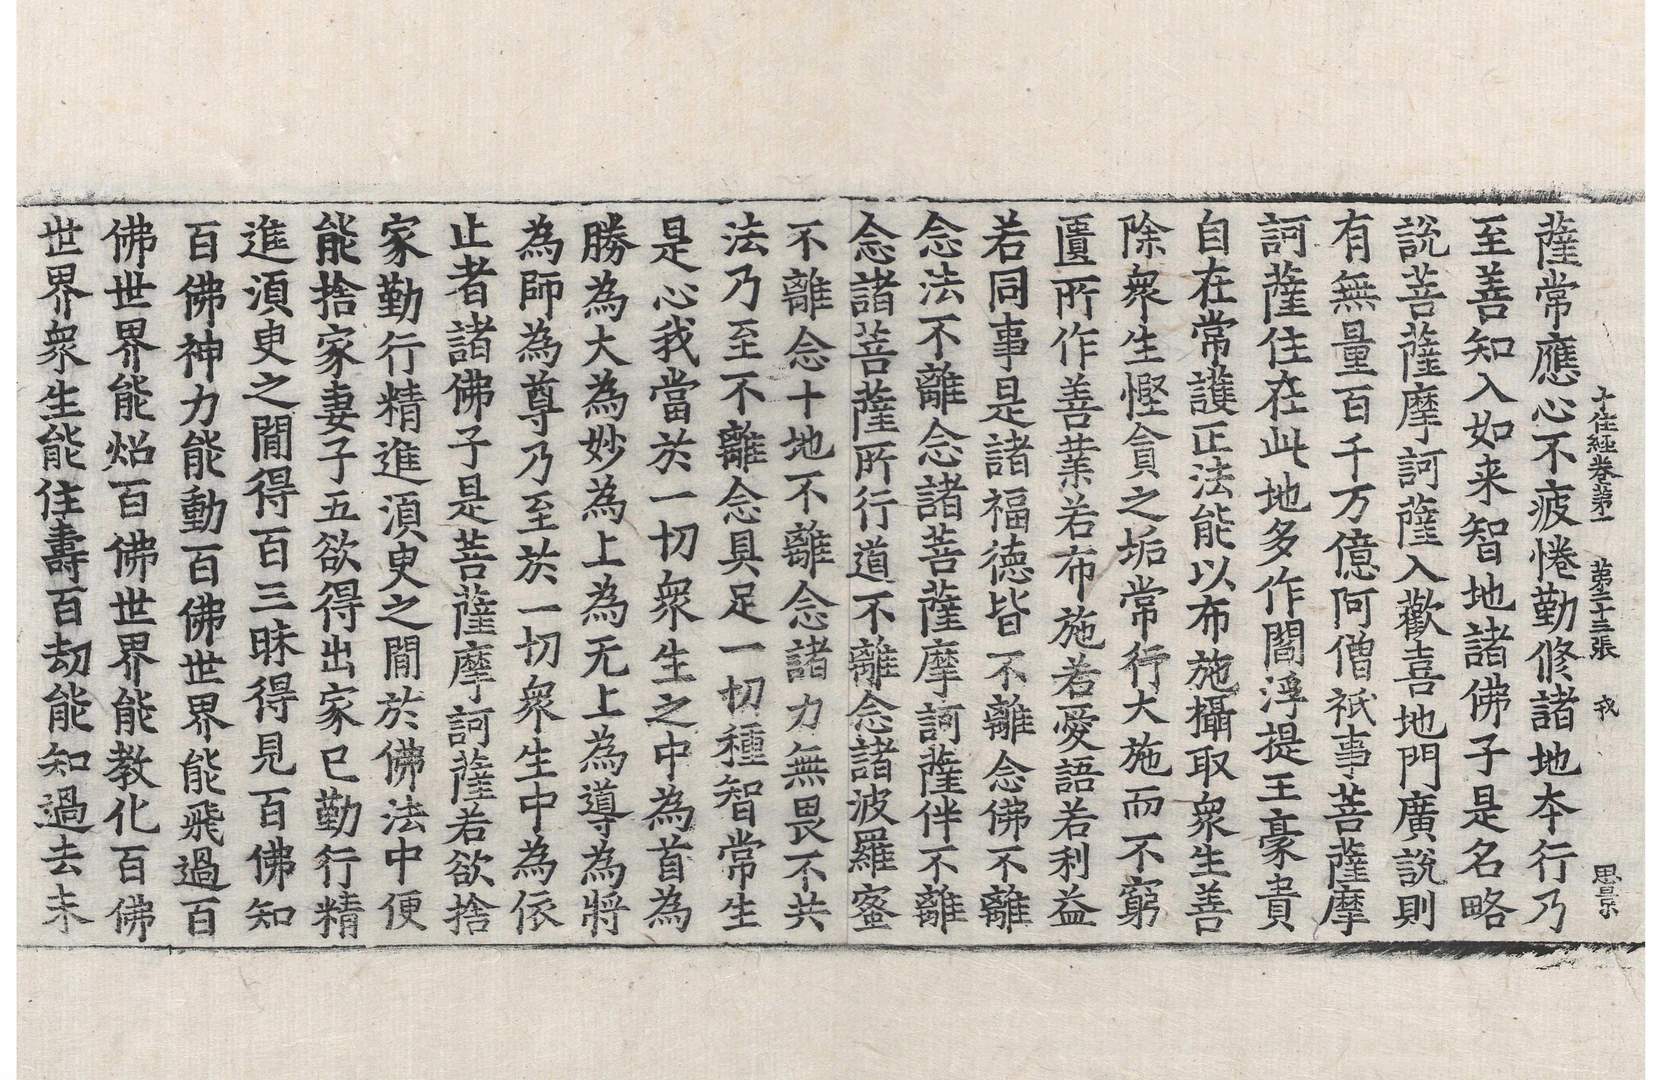 十住經卷第一 第二十三張 戎 思景
薩常應心不疲惓勤修諸地本行乃
至善知入如来智地諸佛子是名略
說菩薩摩訶薩入歡喜地門廣說則
有無量百千万億阿僧祇事菩薩摩
訶薩住在此地多作閻浮提王豪貴
自在常護正法能以布施攝取衆生善
除衆生慳貪之垢常行大施而不窮
匱所作善業若布施若愛語若利益
若同事是諸福德皆不離念佛不離
念法不離念諸菩薩摩訶薩伴不離
念諸菩薩所行道不離念諸波羅蜜
不離念十地不離念諸力無畏不共
法乃至不離念具足一切種智常生
是心我當於一切衆生之中為首為
勝為大為妙為上為无上為導為將
為師為尊乃至於一切衆生中為依
止者諸佛子是菩薩摩訶薩若欲捨
家勤行精進須臾之閒於佛法中便
能捨家妻子五欲得出家已勤行精
進須臾之閒得百三昧得見百佛知
百佛神力能動百佛世界能飛過百
佛世界能炤百佛世界能教化百佛
世界衆生能住壽百劫能知過去未